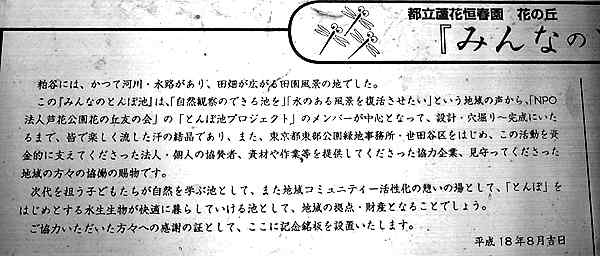 都立蘆花恒春園 花の丘
『みんなの
粕谷には、かつて河川・水路があり、田畑が広がる田園風景の地でした。
この『みんなのとんぼ池』は、「自然観察のできる池を」「水のある風景を復活させたい」という地域の声から、「NPO
法人芦花公園花の丘友の会」の「とんぼ池プロジェクト」のメンバーが中心となって、設計・穴掘り～完成にいた
るまで、皆で楽しく流した汗の結晶であり、また、東京都東部公園緑地事務所・世田谷区をはじめ、この活動を資
金的に支えてくださった法人・個人の協賛者、資材や作業等を提供してくださった協力企業、見守ってくださった
地域の方々の協働の賜物です。
次代を担う子どもたちが自然を学ぶ池として、また地域コミュニティー活性化の憩いの場として、「とんぼ」を
はじめとする水生生物が快適に暮らしていける池として、地域の拠点・財産となることでしょう。
ご協力いただいた方々への感謝の証として、ここに記念銘板を設置いたします。
平成18年8月吉日